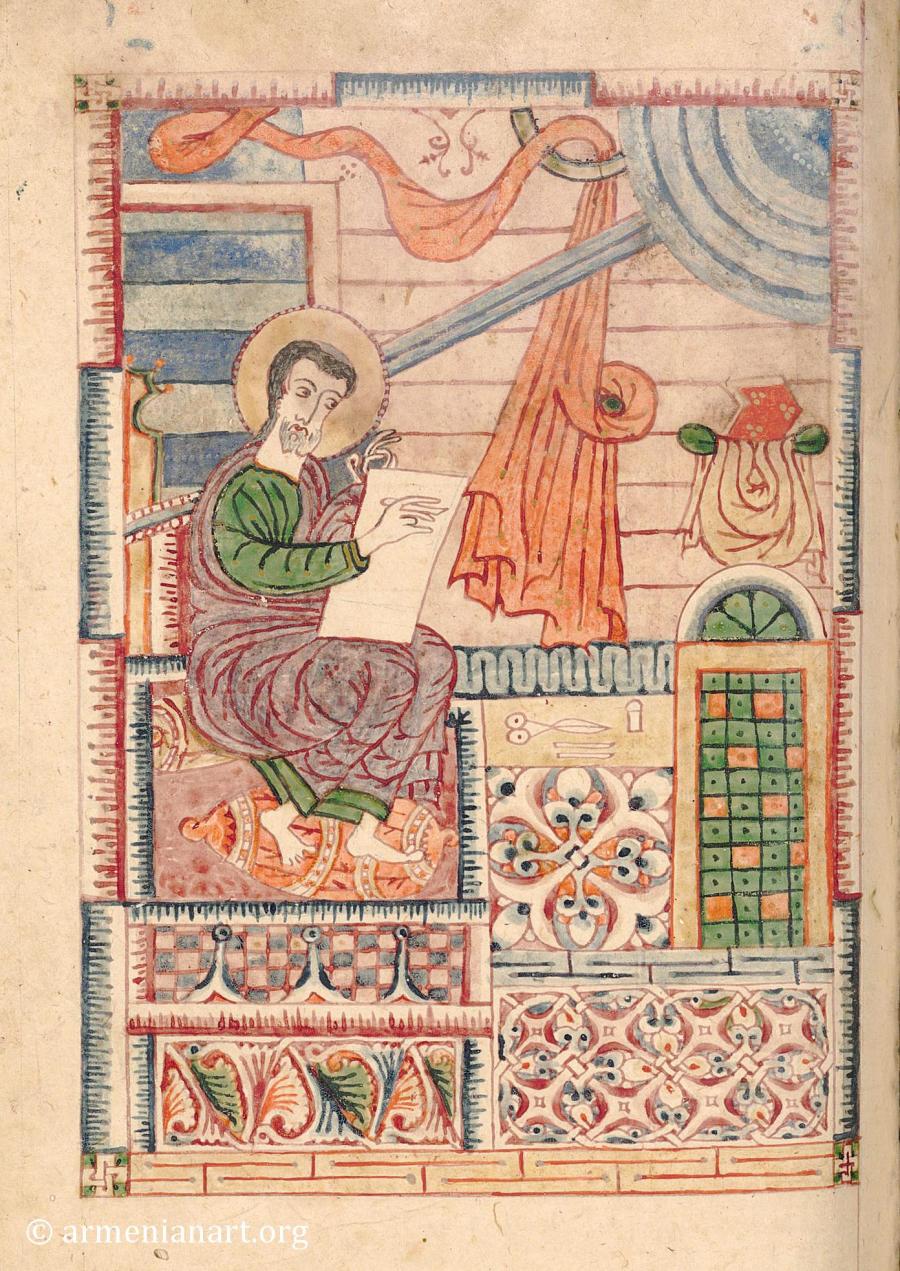 © armenianart.org